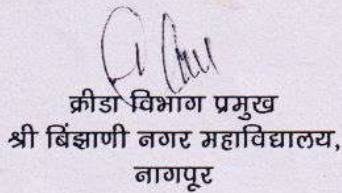 क्रीडा विभाग प्रमुख
श्री बिंझाणी नगर महाविद्यालय,
नागपूर